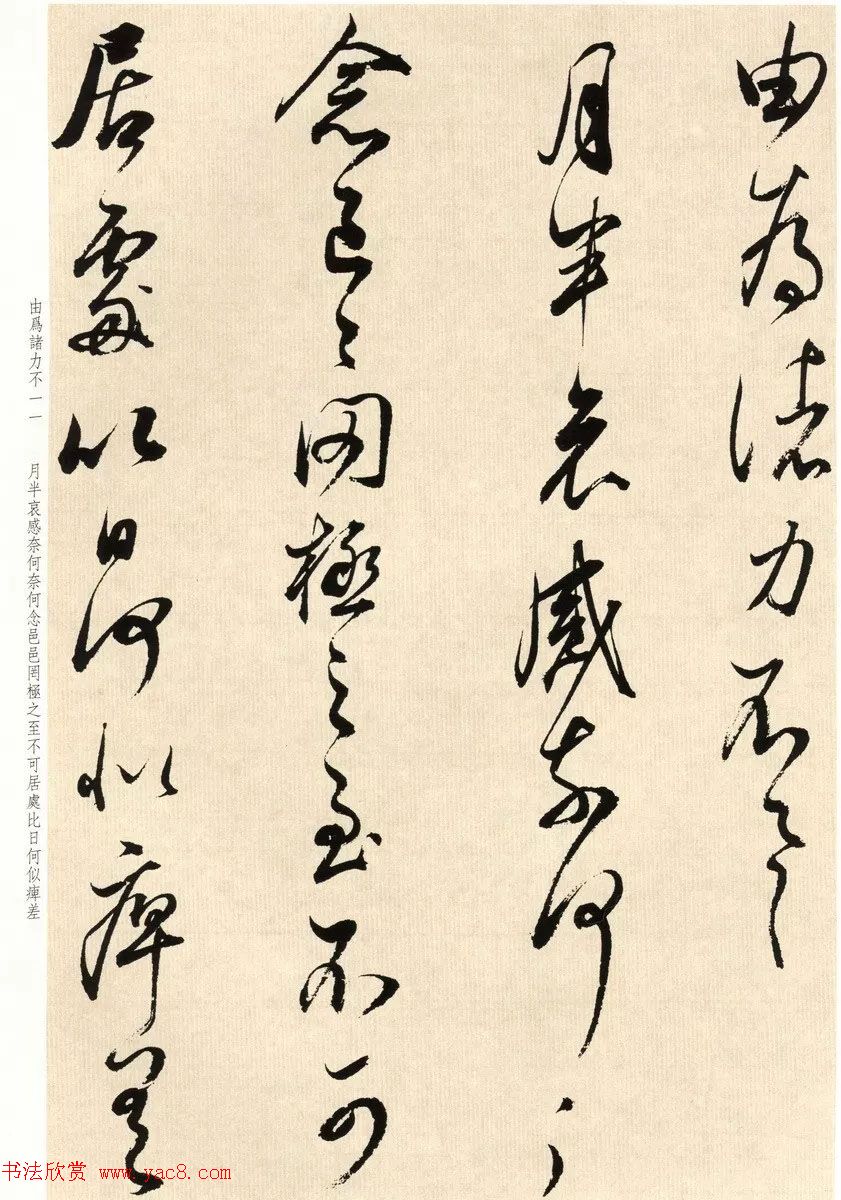 由為諸力不一一
月半哀感奈何奈何
念邑邑罔極之至不可
居處比日何似痺差
由爲諸力不一一　月半哀感奈何奈何念邑邑罔極之至不可居處比日何似痺差
书法欣赏 www.yac8.com